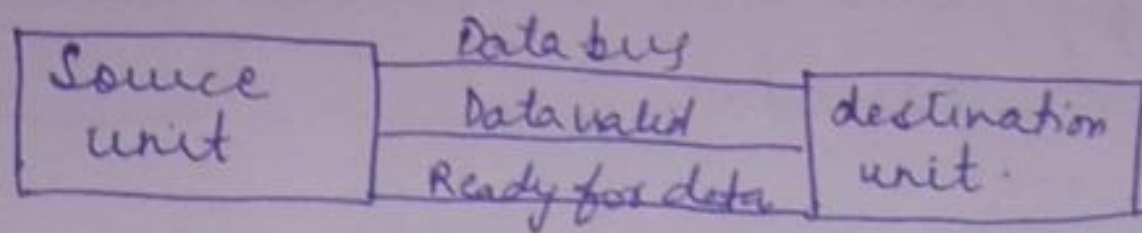 Source
unit
Data bus
Data valid
Ready for data
destination
unit.